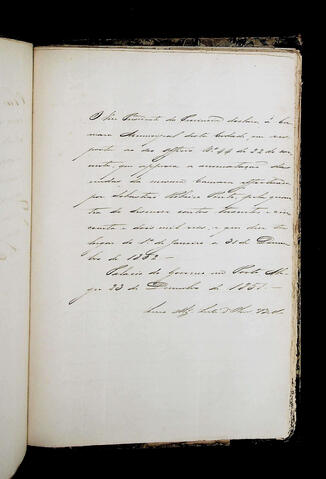 O Vice Presidente da Provincia declara á Ca-
mara Municipal desta Cidade, em res-
posta ao seo officio Nº 44 de 22 do cor-
rente, que approva a arrematação das
rendas da mesma Camara effectuada
por Sebastião Pinto, pela quan-
tia de e cin-
coenta e dois mil reis, e que deve ter
lugar de 1º de Janeiro a 31 de Dezem-
bro de 1852 -
Palacio do Governo em Porto Ale-
gre 23 de Dezembro de 1851 -
Luis